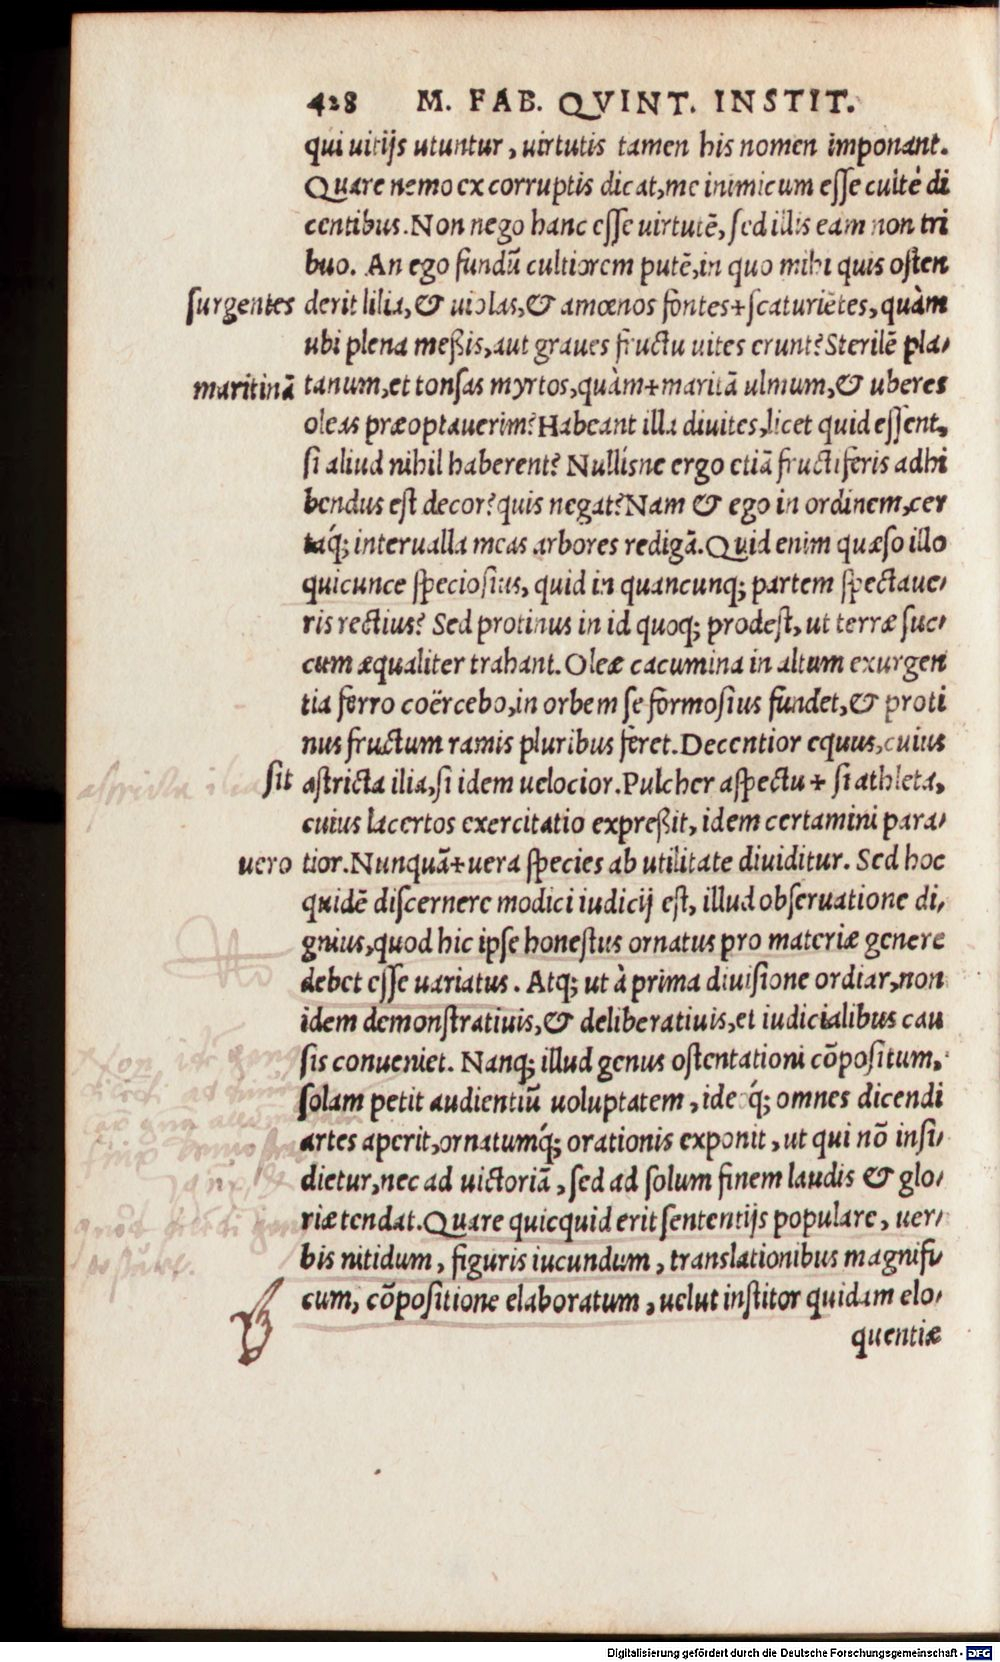 428 M. FAB. QVINT. INSTIT.
qui uitijs utuntur, uirtutis tamen his nomen imponant.
Quare nemo ex corruptis dicat, me inimicum esse cultè di
centibus. Non nego hanc esse uirtutē, sed illis eam non tri
buo. An ego fundū cultiorem putē, in quo mihi quis osten
surgentes derit lilia, & uiolas, & amœnos fontes+scaturiētes, quàm
ubi plena meßis, aut graues fructu uites erunt? Sterilē pla,
maritinā tanum, et tonsas myrtos, quàm+maritā ulmum, & uberes
oleas præoptauerim? Habeant illa diuites, licet quid essent,
si aliud nihil haberent? Nullisne ergo etiā fructiferis adhi
bendus est decor? quis negat? Nam & ego in ordinem, cer
taq́; interualla meas arbores redigā. Quid enim quæso illo
quicunce speciosius, quid in quancunq; partem spectaue,
ris rectius? Sed protinus in id quoq; prodest, ut terræ suc,
cum æqualiter trahant. Oleæ cacumina in altum exurgen
tia ferro coërcebo, in orbem se formosius fundet, & proti
nus fructum ramis pluribus feret. Decentior equus, cuius
astricta ilia sit astricta ilia, si idem uelocior. Pulcher aspectu + si athleta,
cuius lacertos exercitatio expreßit, idem certamini para,
uero tior. Nunquā+uera species ab utilitate diuiditur. Sed hoc
quidē discernere modici iudicij est, illud obseruatione di,
gnius, quod hic ipse honestus ornatus pro materiæ genere
debet esse uariatus. Atq; ut à prima diuisione ordiar, non
idem demonstratiuis, & deliberatiuis, et iudicialibus cau
sis conueniet. Nanq; illud genus ostentationi cōpositum,
solam petit audientiū uoluptatem, ideoq́; omnes dicendi
artes aperit, ornatumq́; orationis exponit, ut qui nō insi,
dietur, nec ad uictoriā, sed ad solum finem laudis & glo,
riæ tendat. Quare quicquid erit sententijs populare, uer,
bis nitidum, figuris iucundum, translationibus magnifi,
cum, cōpositione elaboratum, uelut institor quidam elo,
quentiæ
Digitalisierung gefördert durch die Deutsche Forschungsgemeinschaft - DFG